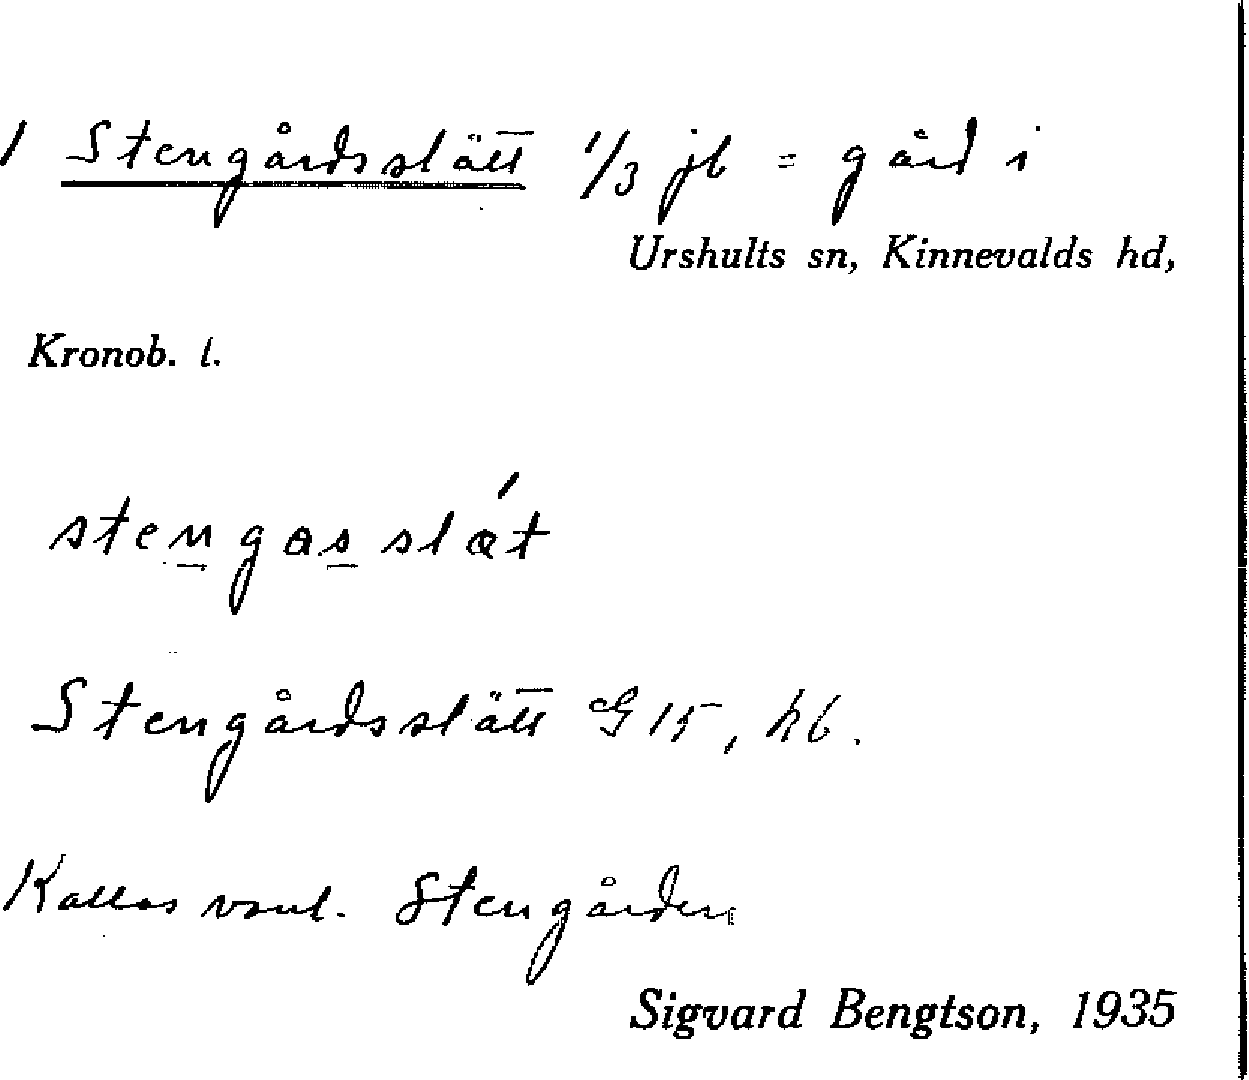 1 Stengårdsslätt 1/3 jb = gård i
Urshults sn, Kinnevalds hd,
Kronob. l.
stengasslǽt
Stengårdsslätt G 15, hb.
Kallas vanl. Stengården
Sigvard Bengtson, 1935